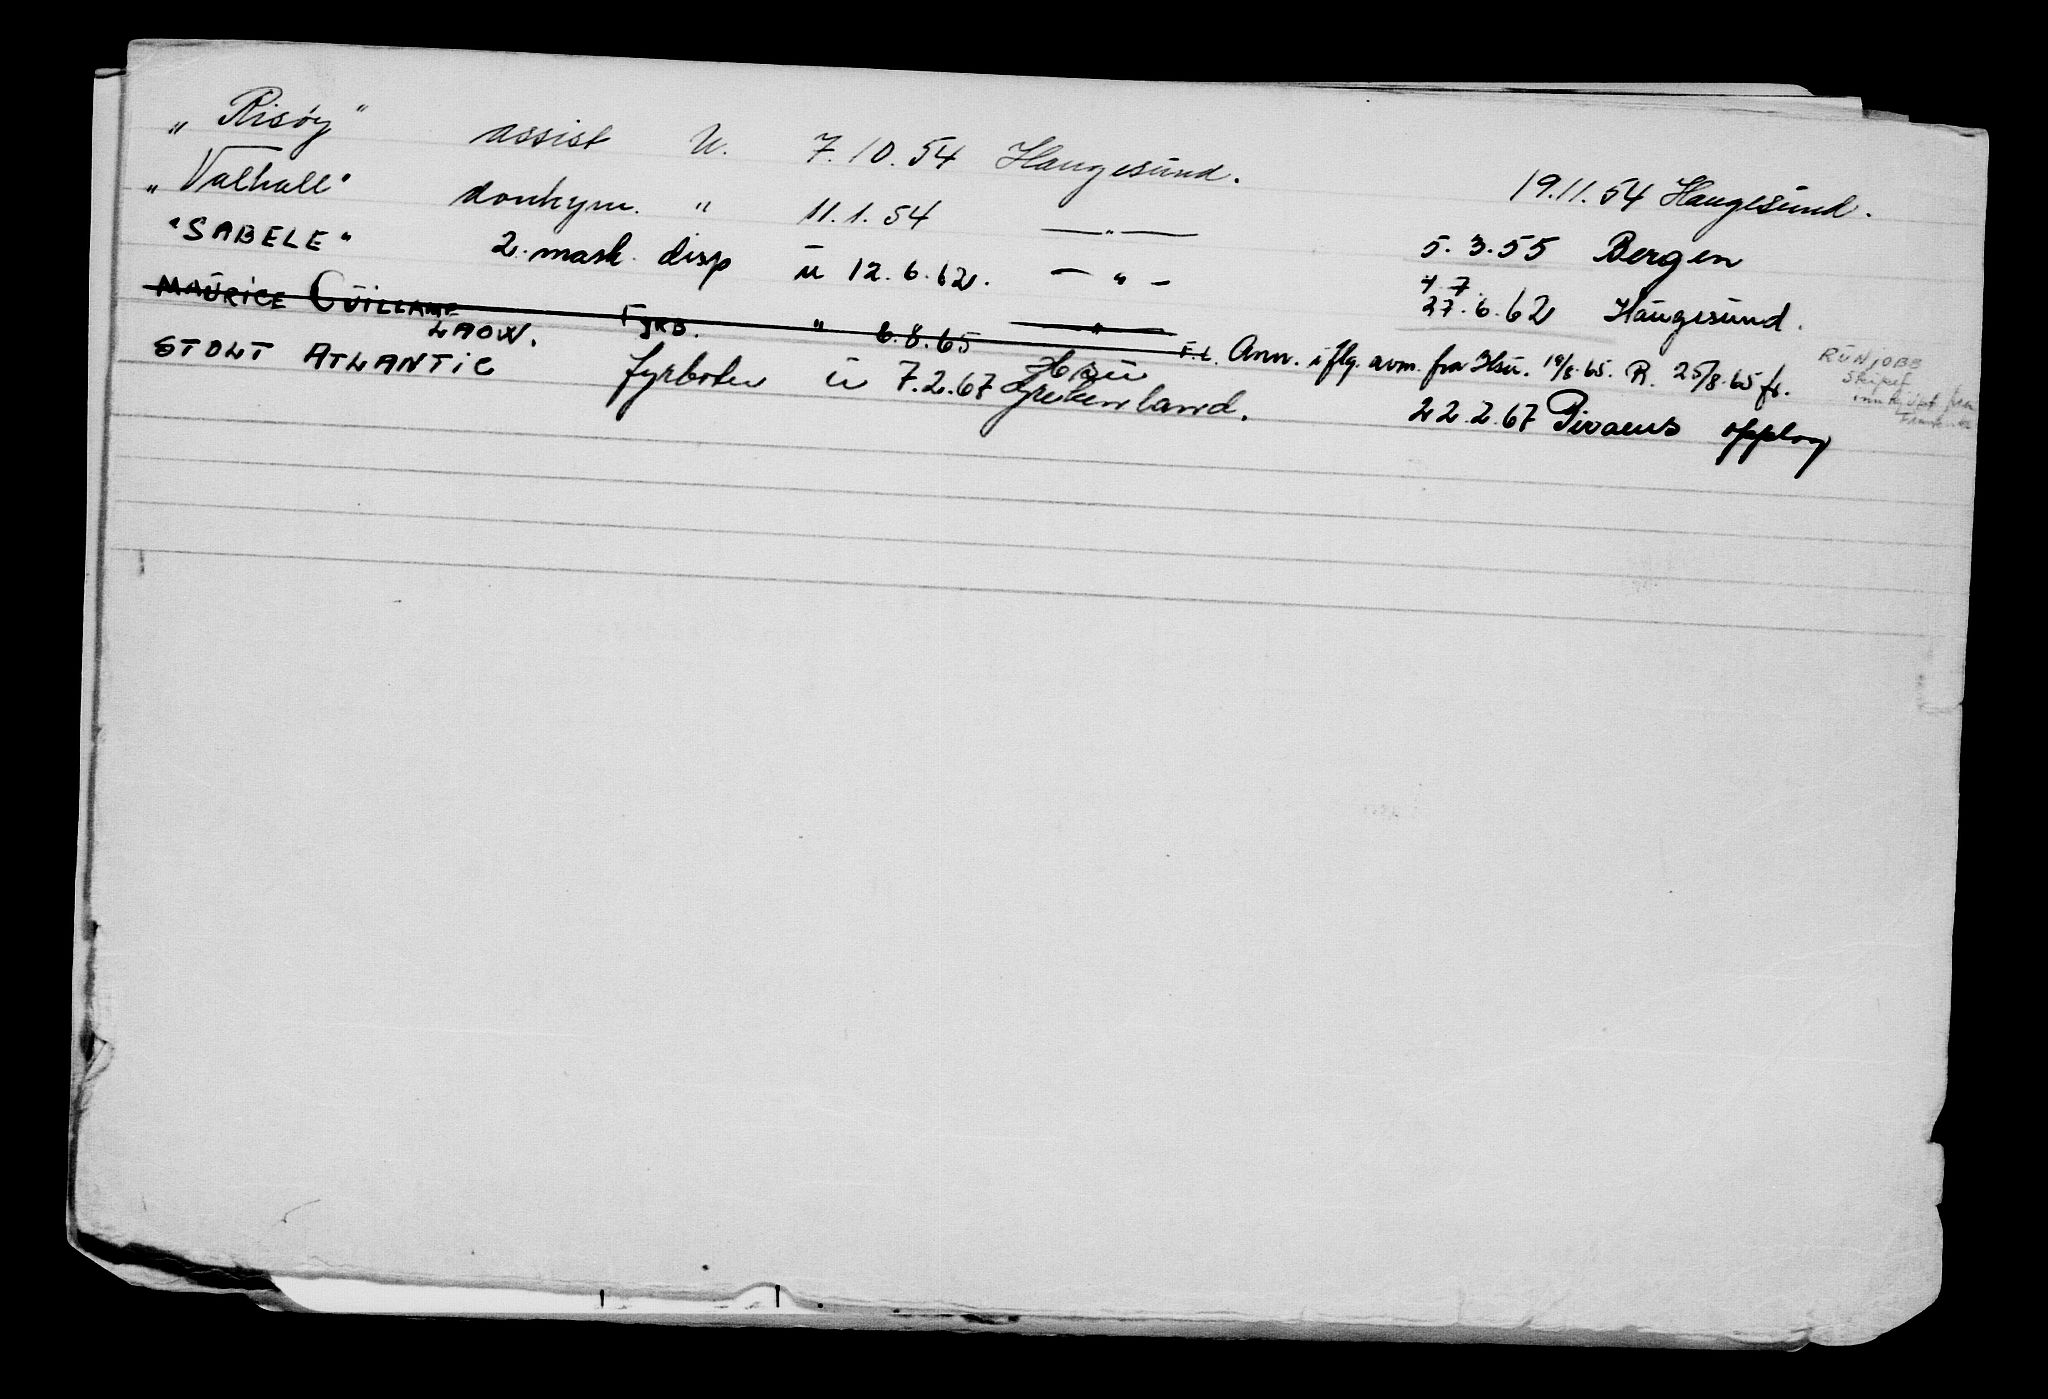 „ Risöy " assist U. 7.10.54 Haugesund. 19.11.54 Haugesund.
„ Valhall " donkym. " 11.1.54 — " — 5.3.55 Bergen
"SABELE" 2. mask. disp u 12.6.62. — " — 27.6.62 Haugesund.
4 7
MAURICE GUILLAME Fyrb. " 6.8.65 — " — F.t. Ann. iflg. avm. fra Hsu. 19/8.65. R. 25/8.65 fr.
RUNJOBB
skipet
LADW.
STOLT ATLANTIC fyrboter u 7.2.67 Grekenland. 22.2.67 Piraeus opplag